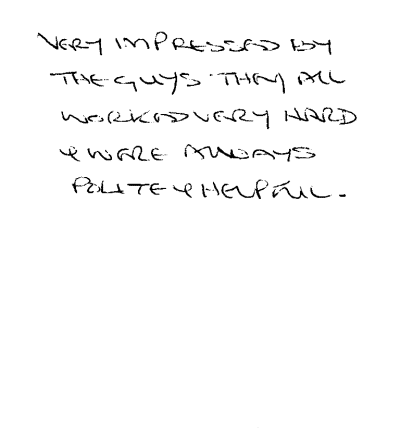 VERY IMPRESSED BY
THE GUYS. THEY ALL
WORKED VERY HARD
& WERE ALWAYS
POLITE & HELPFUL.